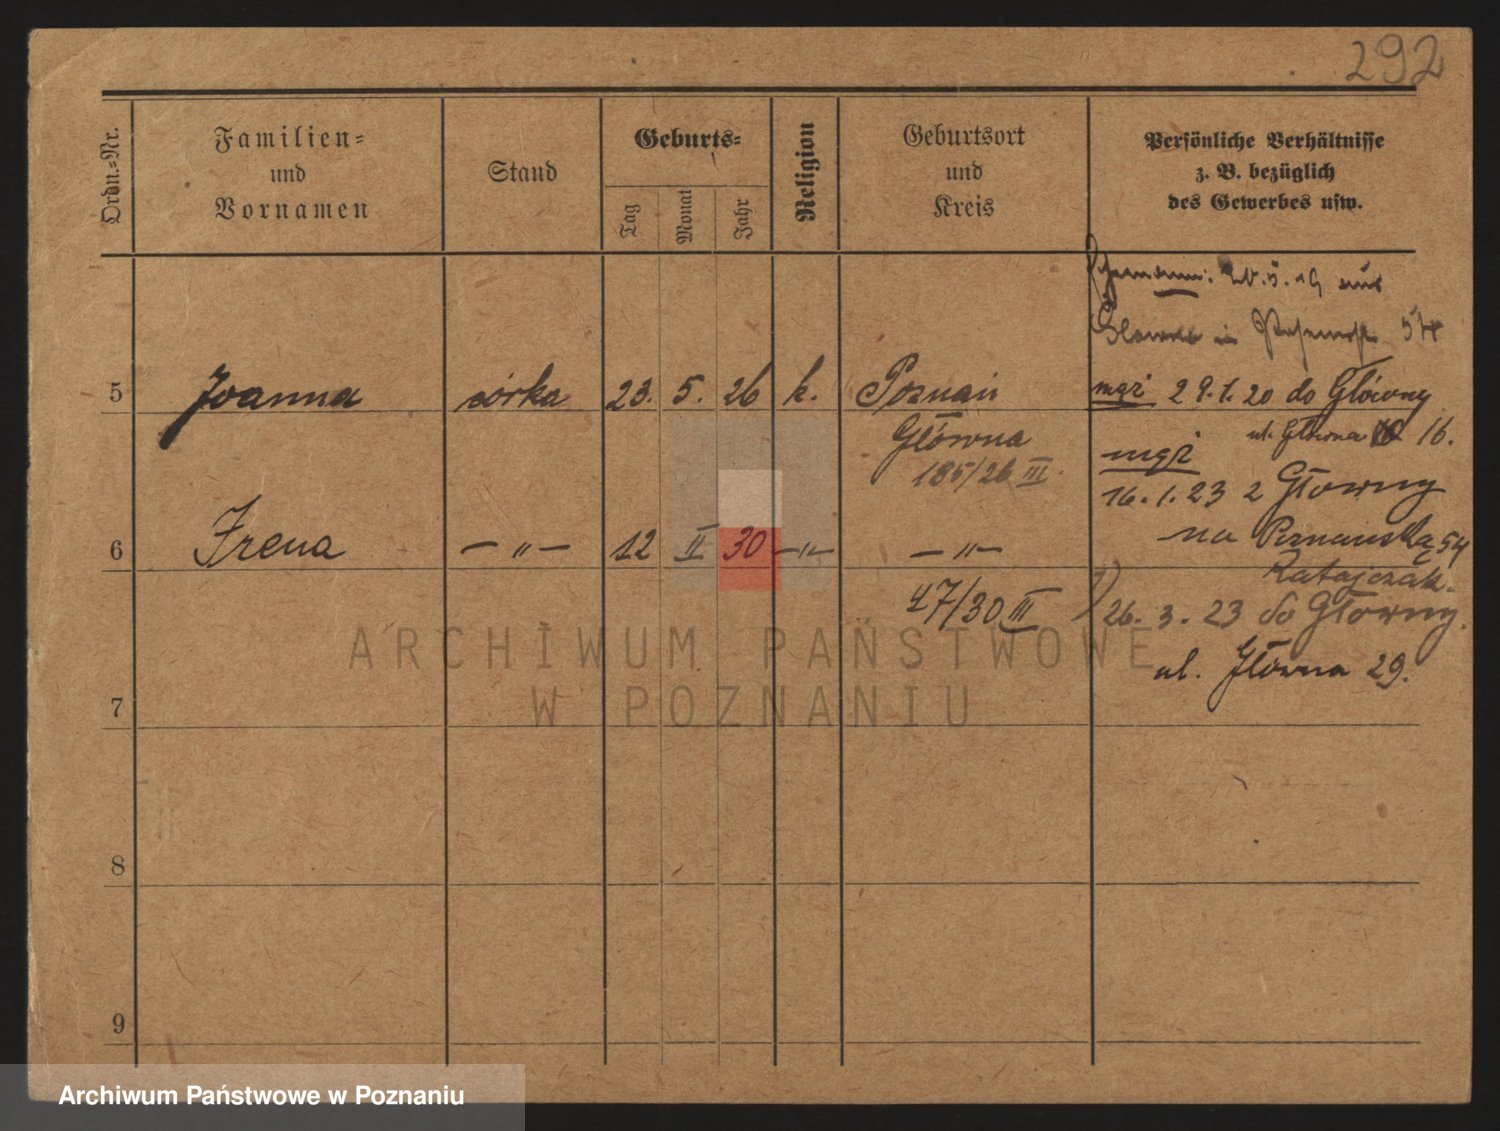 292
Ordn.-Nr.
Familien-
und
Vornamen
Stand
Geburts-
Tag
Monat
Jahr
Religion
Geburtsort
und
Kreis
Persönliche Verhältnisse
z. B. bezüglich
des Gewerbes usw.
aus
in 54
5 Joanna córka 23. 5. 26 k. Poznań
Główna
185/26 III.
mąż 29.1.20 do Główny
ul. Główna 16.
mąż
16.1.23 z Głowny
na Poznańską 54
Ratajczak.
6 Irena — " — 12 II 30 — " — — " —
47/30 III
26. 3. 23 do Głowny.
ul. Główna 29.
7
8
9
ARCHIWUM PAŃSTWOWE
W POZNANIU
Archiwum Państwowe w Poznaniu